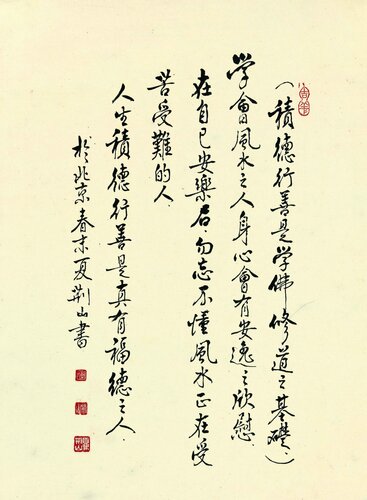 （積德行善是学佛修道之基礎。）
学會風水之人身心會有安逸之欣慰.
在自己安樂后.勿忘不懂風水正在受
苦受難的人.
人生積德行善是真有福德之人.
於北京春末夏荆山書